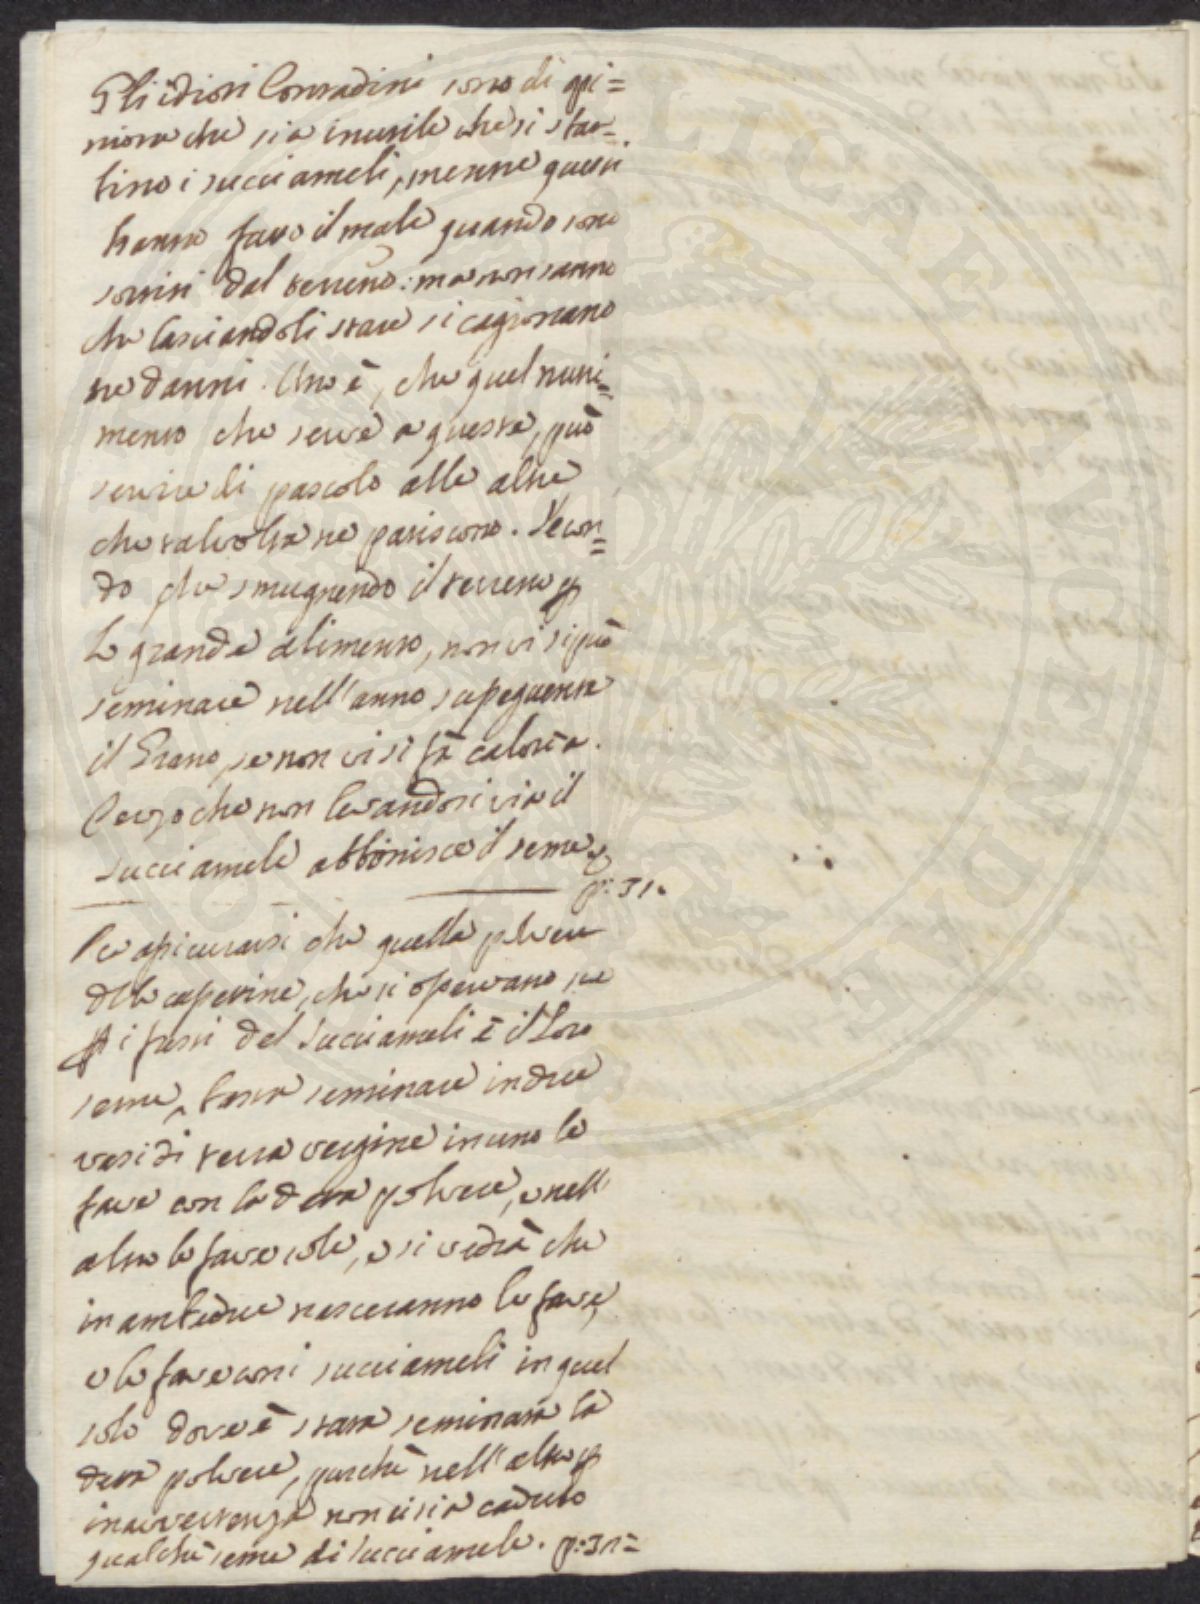 Gli idioti Contadini sono di opi=
nione che sia inutile che si sbar=
bino i succiameli, mentre questi
hanno fatto il male quando sono
sortiti dal terreno: ma non sanno
che lasciandoli stare si cagionano
tre danni. Uno è, che quel nutri=
mento che serve a queste, può
servire di pascolo alle altre
che talvolta ne patiscono. Secon=
do che smugnendo il terreno p
lo grande alimento, non vi si può
seminare nell'anno susseguente
il Grano, se non vi si fà caloria.
Terzo che non levandosi via il
succiamele abbonisce il seme
p: 31.
Per assicurarsi che quella polvere
delle casettine, che si osservano ne
i fusti del Succiameli è il loro
seme, basta seminare in due
vasi di terra vergine in uno le
fave con la detta polvere, e nell'
altro le fave sole, e si vedrà che
in ambedue nasceranno le fave,
e le fave con i succiameli in quel
solo dove è stata seminata la
detta polvere, purchè nell'altro p
inavvertenza non ci sia caduto
qualche seme di succiamele. p: 31=